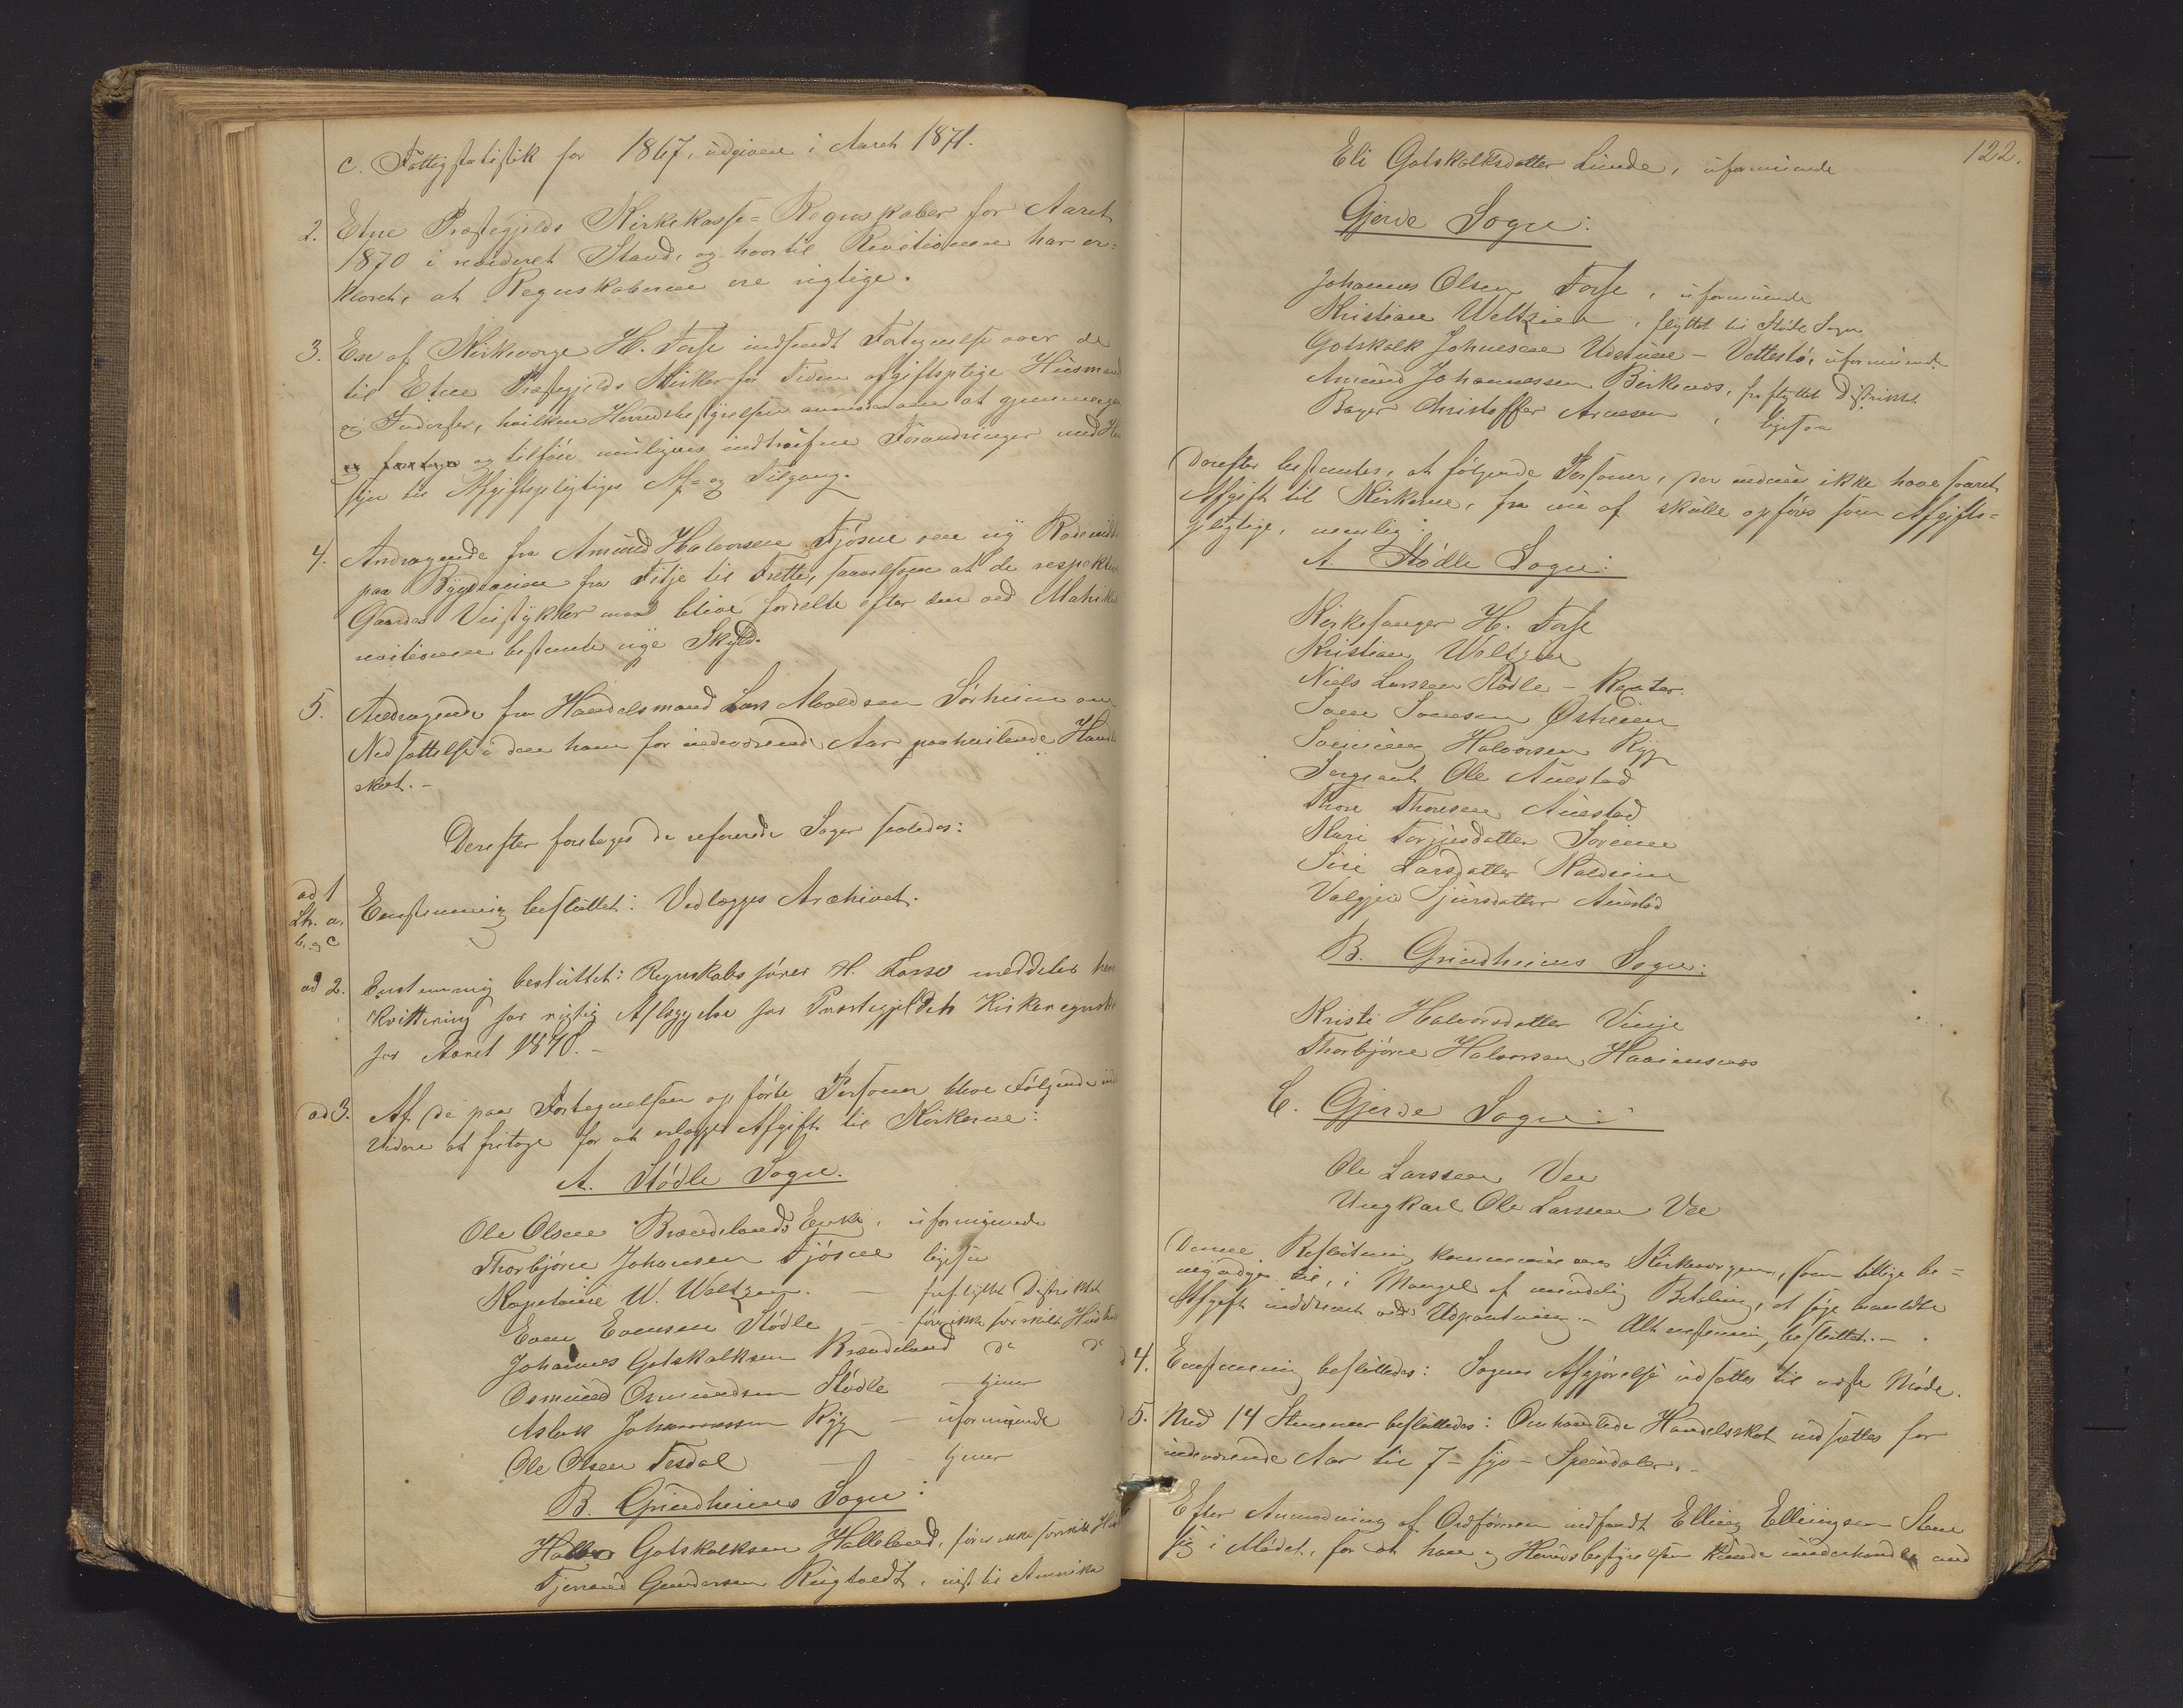 c. Fattigstatistik for 1867, udgiven i Aaret 1871.
2. Etne Præstegjelds Kirkekasse=Regnskaber for Aaret
1870 i revideret Stand, og hvortil Revisionen har er=
klæret, at Regnskaberne ere rigtige.
3. En af Kirkeværge H. Fosse indsendt Fortegnelse over de
til Etne Præstegjelds Kirker for Tiden afgiftsplige Husmænd
og Inderster, hvilken Herredsbestyrelsen at gjennemgaa
og tilføie muligens indtrufne Forandringer med Hen
syn til Afgiftspligtiges Af= og Tilgang.
4. Andragende fra Amund Halvorsen Fjøsne om ny Rodeinddeling
paa Bygdeveien fra Fitje til Frette, saavelsom at de respektive
Gaardes Veistykker maa blive fordelte efter den ved Matrikul
revisionen bestemte nye Skyld.
5. Andragende fra Handelsmand Lars Sørheim om
Nedsættelse i den ham for indeværende Aar paahvilende Handels
skat.-
Derefter foretoges de refererede Sager saaledes:
ad 1
Ltr. a,
b. og c
Eenstemmig besluttet: Vedlægges Archivet.
ad 2. Enstemmig besluttet: Regnskabsfører H. Fosse meddeles herved
Kvittering for rigtig Aflæggelse for Præstegjeldets Kirkeregnskab
for Aaret 1870.-
ad 3. Af de paa Fortegnelsen opførte Personer bleve Følgende ind
videre at fritage for at erlægge Afgift til Kirkerne:
A. Stødle Sogn.
Ole Olsen Brændelands Enke, uformuende
Thorbjørn Johansen Fjøsne ligesaa
Kapitaine W. Weltzien. — fraflyttet Distriktet
Even Evensen Stødle — fører ikke særskilt Hushold
Johannes Gotskalksen Brændeland do do
Osmund Osmundsen Stødle — tjener
Aslak Johannessen Ryg — uformuende
Ole Olsen Tesdal — tjener
B. Grindheims Sogn:
Gotskalksen Halleland, fører ikke særskilt Hus
Gundersen Rygtvedt, reist til Amerika
122.
Eli Gotskalksdatter Lunde, uformuende
Gjerde Sogn:
Johannes Olsen Fosse, uformuende
Kristian Weltzien, flyttet til Stødle Sogn
Gotskalk Johnesen - Vettestø, uformuende
Amund Johannessen Birkenes, fraflyttet Distriktet
Christoffer Arnesen, ligesaa
Derefter bestemtes, at følgende Personer, der endnu ikke have svaret
Afgift til Kirkerne, fra nu af skulle opføres som Afgifts=
pligtige, nemlig:
A. Stødle Sogn:
Kirkesanger H. Fosse
Kristian Weltzien
Niels Larssen Stødle - Rexter.
Sven Svensen Østreim
Halvorsen Ryg
Sergeant Ole Auestad
Thore Thoresen Auestad
Kari Torgjusdatter
Siri Larsdatter
Valgjer Sjursdatter Auestad
B. Grindheims Sogn:
Kristi Halvorsdatter Vinje
Thorbjørn Halvorsen Haaimsnæs
C. Gjerde Sogn:
Ole Larssen Vee
Ungkarl Ole Larssen Vee
Denne Beslutning kommuniceres Kirkeværgen, som tillige be=
myndiges til, i Mangel af mindelig Betaling, at søge anmeldte
Afgift inddrevet ved Udpantning. - Alt eenstemmig besluttet.-
4. Eenstemmig besluttedes: Sagens Afgjørelse udsættes til næste Møde.
5. Med 14 Stemmer besluttedes: Omhandlede Handelsskat nedsættes for
indeværende Aar til 7 - syv - Speidaler.-
Efter Anmodning af Ordføreren indfandt Elling Ellingsen Stene
sig i Mødet, for at han og Herredsbestyrelsen kunde underhandle om